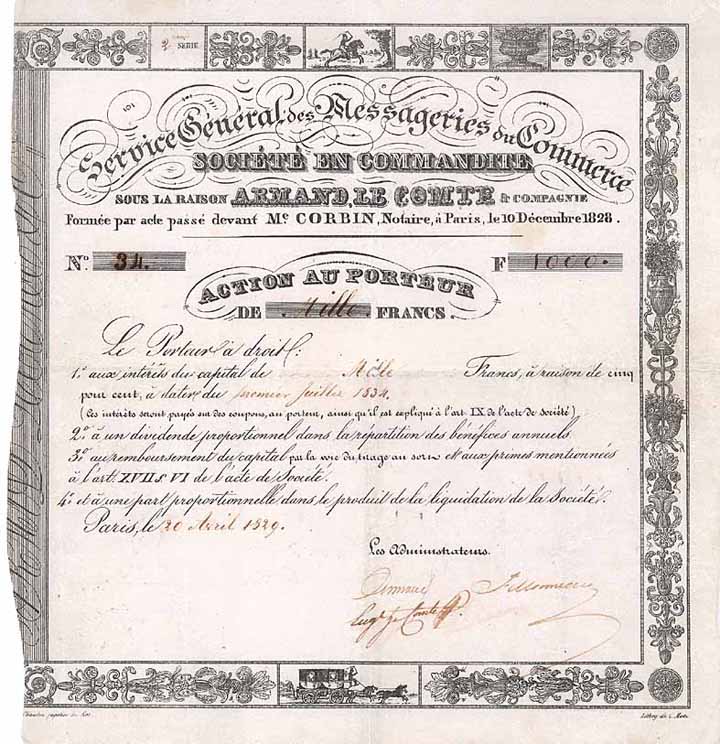 2 SERIE
Service Général des Messageries du Commerce
SOCIÉTÉ EN COMMANDITE
SOUS LA RAISON ARMAND, LE COMTE & COMPAGNIE
Formée par acte passé devant Me CORBIN, Notaire, à Paris, le 10 Décembre 1828.
No. 34. F 1000.
ACTION AU PORTEUR
DE Mille FRANCS.
Le Porteur a droit:
1.o aux intérêts du capital de Mille Francs, à raison de cinq
pour cent, à dater du premier juillet 1834.
(Les intérêts seront payés sur des coupons, au porteur, ainsi qu'il est expliqué à l'art. IX. de l'acte de société);
2.o à un dividende proportionnel dans la répartition des bénéfices annuels
3.o au remboursement du capital par la voie du tirage au sort et aux primes mentionnées
à l'art. XVII § VI de l'acte de Société.
4.o et à une part proportionnelle dans le produit de la liquidation de la Société.
Paris, le 20 Avril 1829.
Les Administrateurs.
Armand
Eug. Le Comte
Lithog. de C. Motte